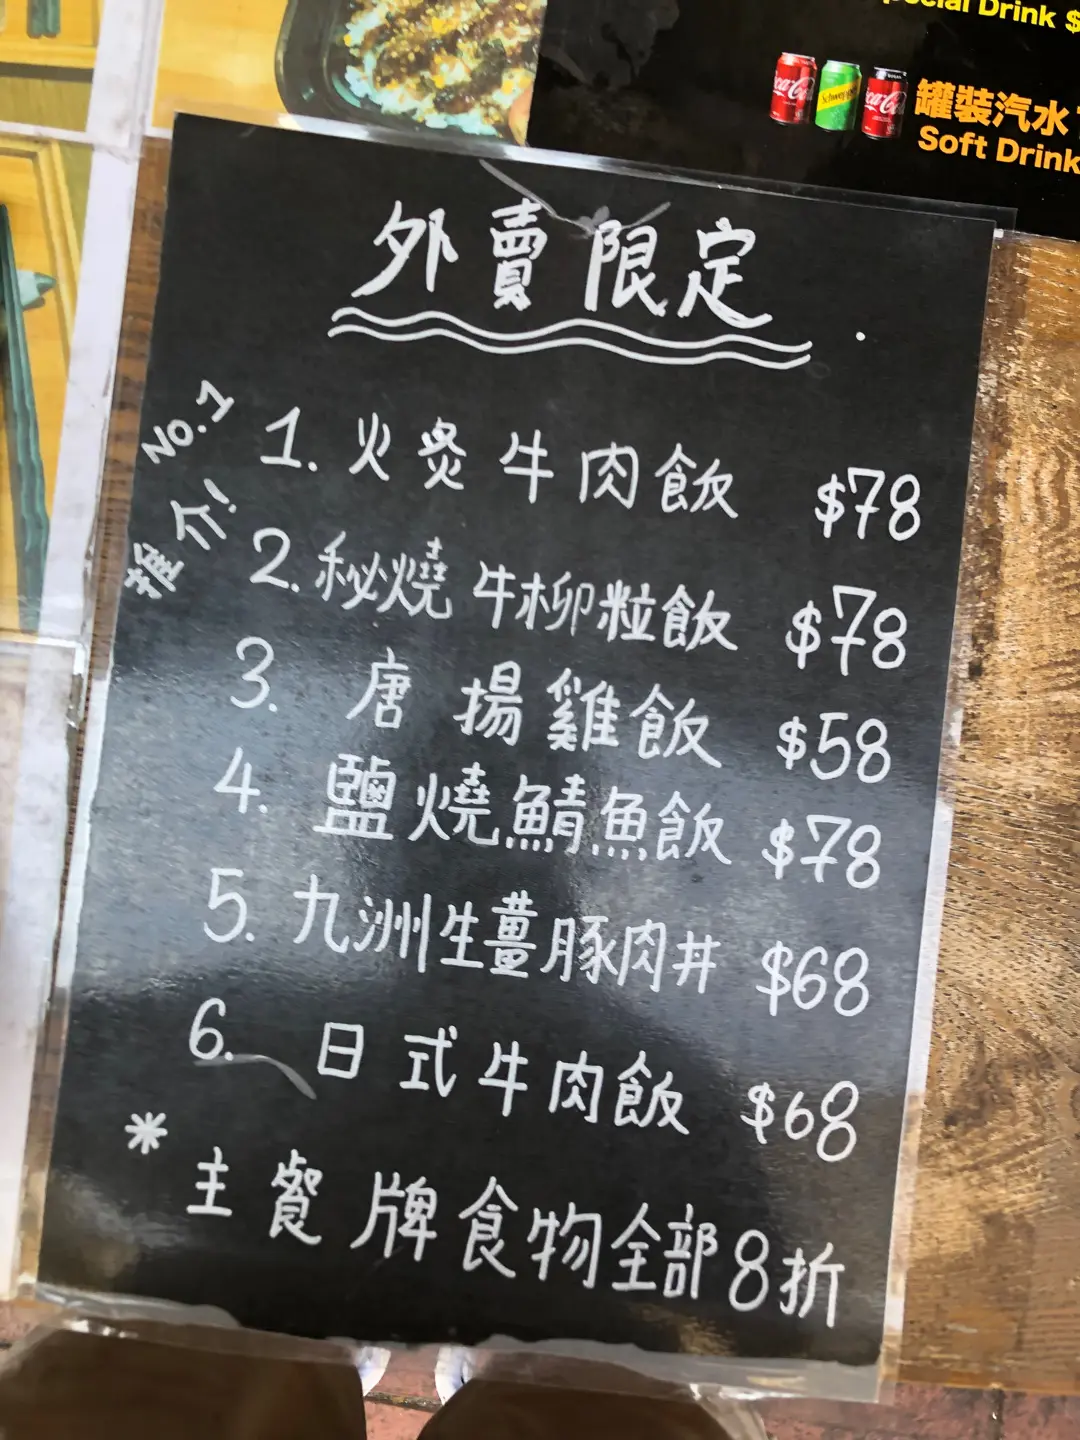 Special Drink $
Coca-Cola
Schweppes
Coca-Cola
罐裝汽水
Soft Drink
外賣限定
NO.1
推介!
1. 火炙牛肉飯 $78
2. 秘燒牛柳粒飯 $78
3. 唐揚雞飯 $58
4. 鹽燒鯖魚飯 $78
5. 九洲生薑豚肉丼 $68
6. 日式牛肉飯 $68
* 主餐牌食物全部8折